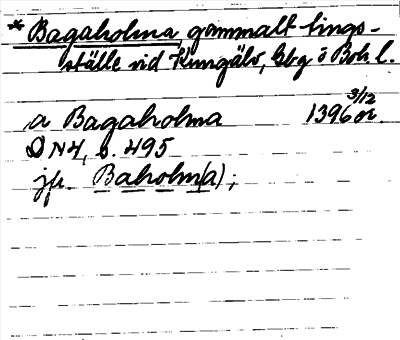 * Bagaholma, gammalt tings-
ställe vid Kungälv, Gbg o Boh l.
a Bagaholma 1396 3/12 or.
DN4, s. 495
jfr. Baholm(a);